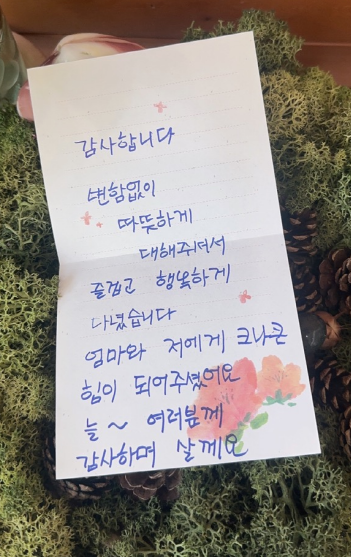 감사합니다
변함없이
따뜻하게
대해주셔서
즐겁고 행복하게
다녔습니다
엄마와 저에게 크나큰
힘이 되어주셨어요
늘~ 여러분께
감사하며 살께요